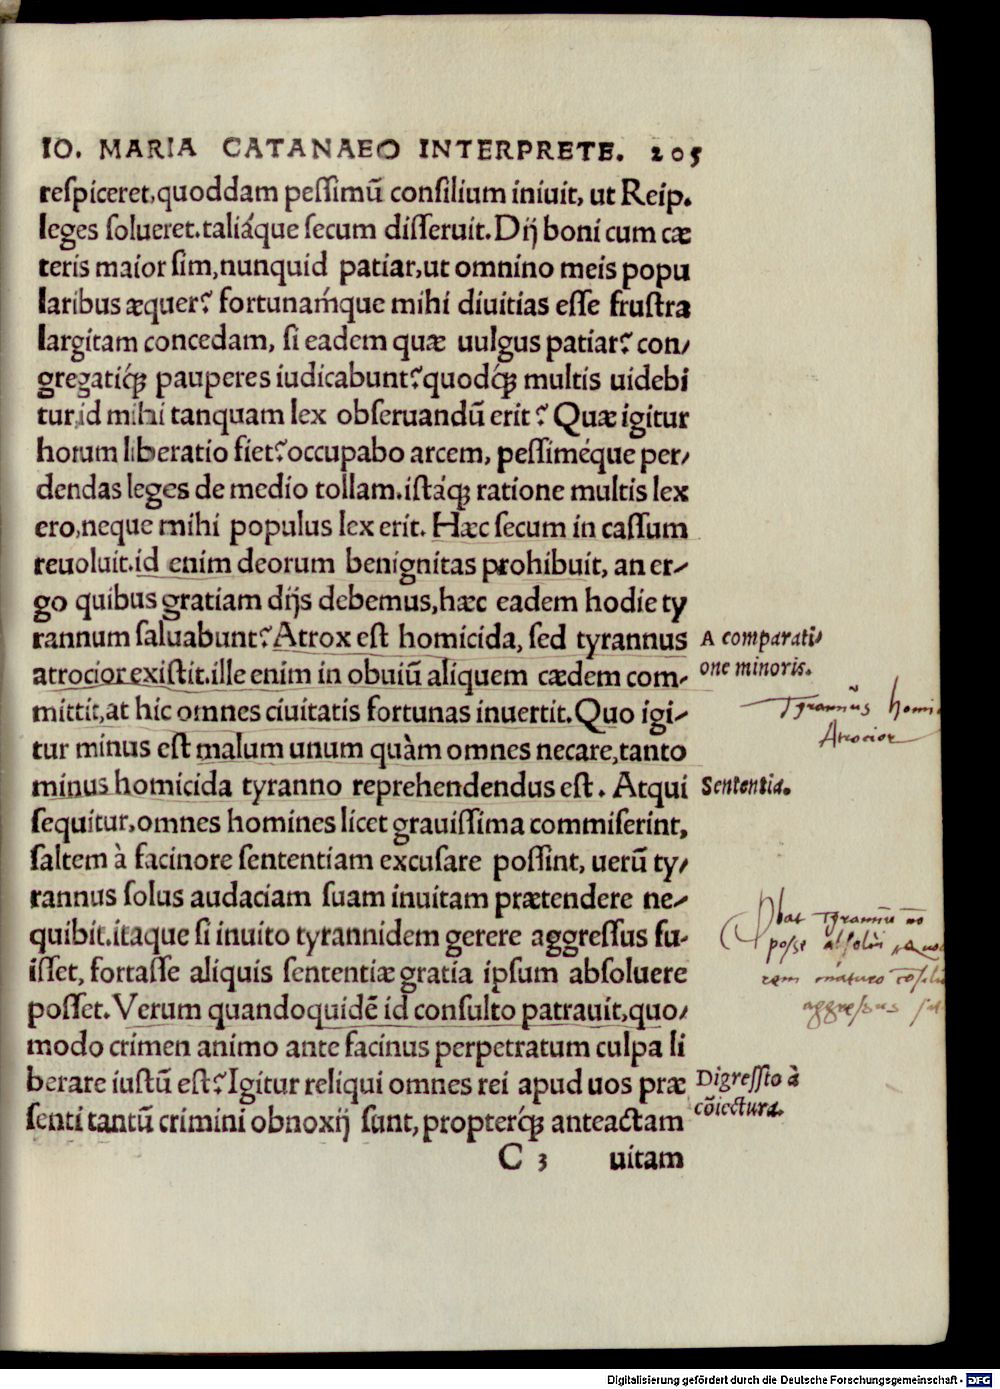 IO. MARIA CATANAEO INTERPRETE. 205
respiceret, quoddam pessimū consilium iniuit, ut Reip.
leges solueret. taliáque secum disseruit. Dij boni cum cæ
teris maior sim, nunquid patiar, ut omnino meis popu
laribus æquer? fortunaḿque mihi diuitias esse frustra
largitam concedam, si eadem quæ uulgus patiar? con/
gregatiq́; pauperes iudicabunt? quodq́; multis uidebi
tur, id mihi tanquam lex obseruandū erit? Quæ igitur
horum liberatio fiet? occupabo arcem, pessiméque per/
dendas leges de medio tollam. istáq; ratione multis lex
ero, neque mihi populus lex erit. Hæc secum in cassum
reuoluit. id enim deorum benignitas prohibuit, an er/
go quibus gratiam dijs debemus, hæc eadem hodie ty
rannum saluabunt? Atrox est homicida, sed tyrannus
atrocior existit. ille enim in obuiū aliquem cædem com-
mittit, at hic omnes ciuitatis fortunas inuertit. Quo igi/
tur minus est malum unum quàm omnes necare, tanto
minus homicida tyranno reprehendendus est. Atqui
sequitur, omnes homines licet grauissima commiserint,
saltem à facinore sententiam excusare possint, uerū ty/
rannus solus audaciam suam inuitam prætendere ne/
quibit. itaque si inuito tyrannidem gerere aggressus fu-
isset, fortasse aliquis sententiæ gratia ipsum absoluere
posset. Verum quandoquidē id consulto patrauit, quo/
modo crimen animo ante facinus perpetratum culpa li
berare iustū est? Igitur reliqui omnes rei apud uos præ
senti tantū crimini obnoxij sunt, propterq́; anteactam
C 3 uitam
A comparati/
one minoris.
Tyrannus homi
Atrocior
Sententia.
Tyrannū nō
posse absolui
rem maturo
aggressus
Digressio à
cōiectura.
Digitalisierung gefördert durch die Deutsche Forschungsgemeinschaft - DFG